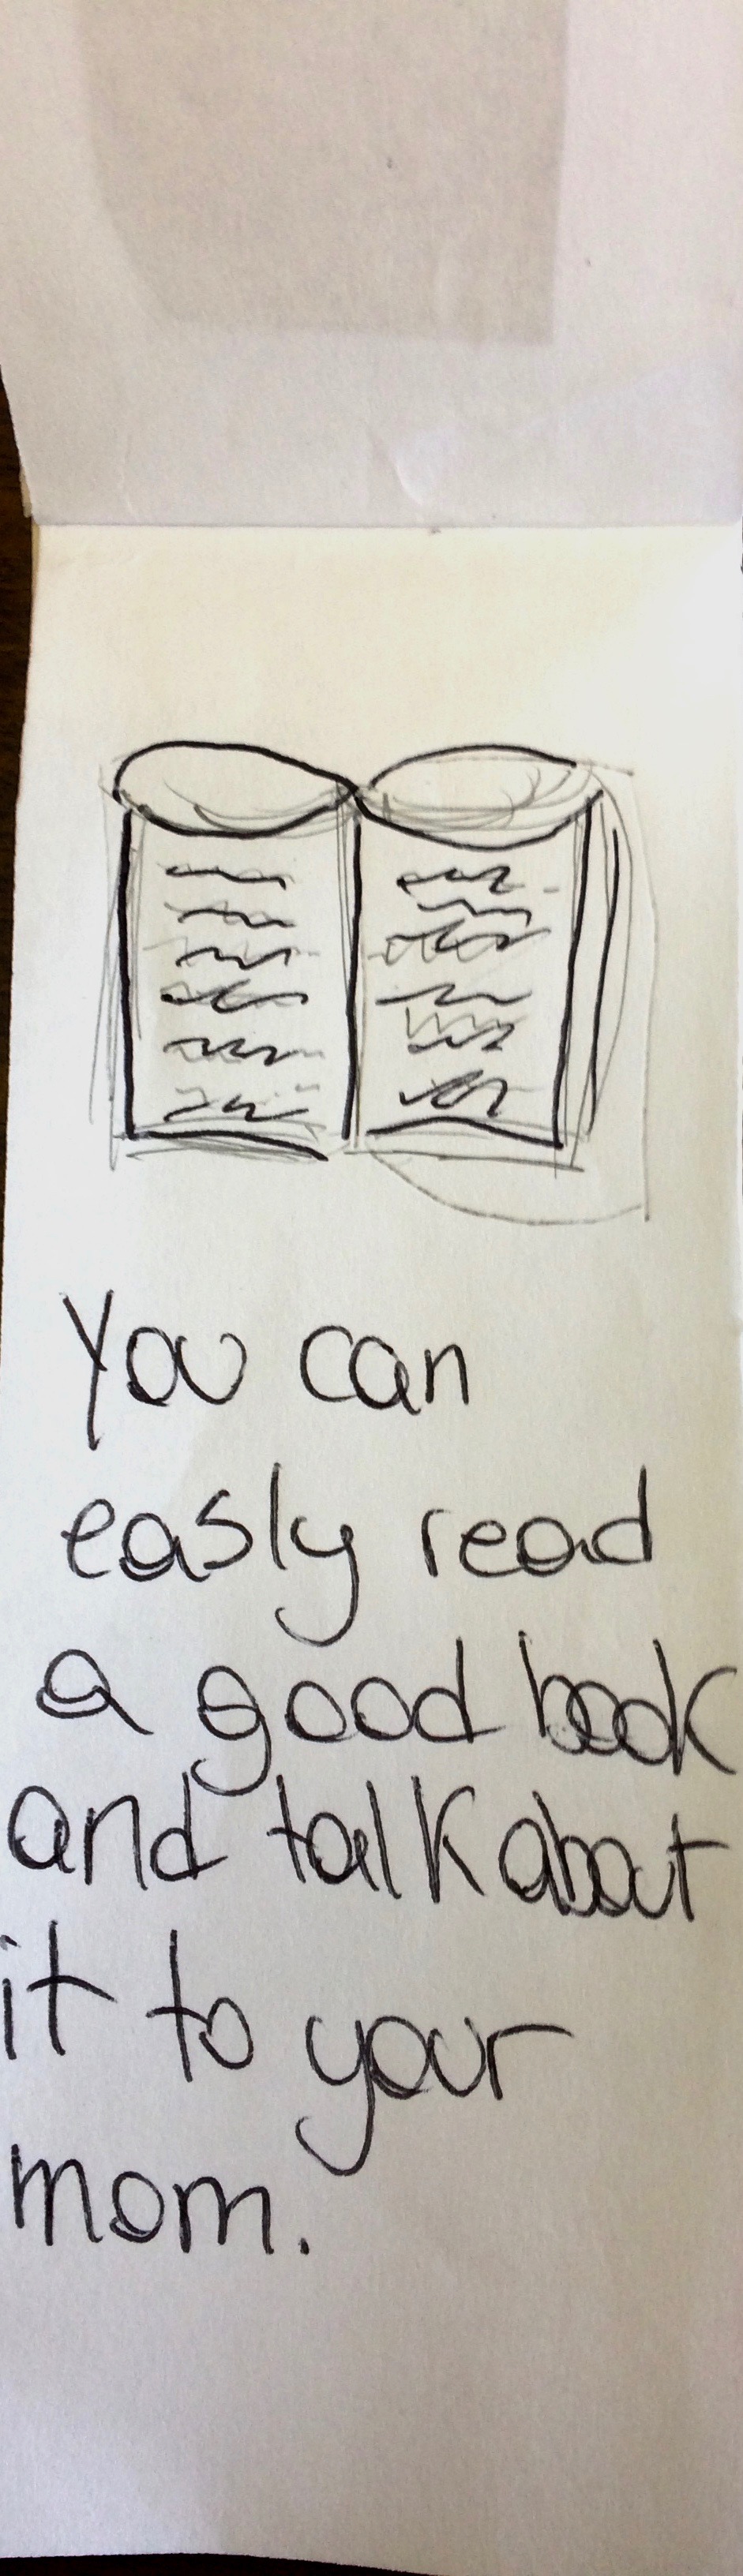 You can
easly read
a good book
and talk about
it to your
mom.